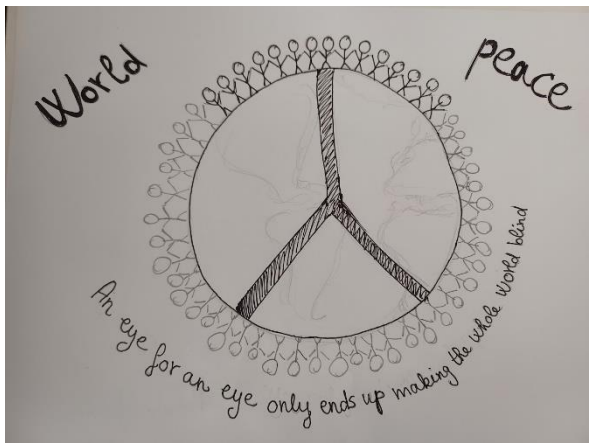 World
peace
An eye for an eye only ends up making the whole world blind